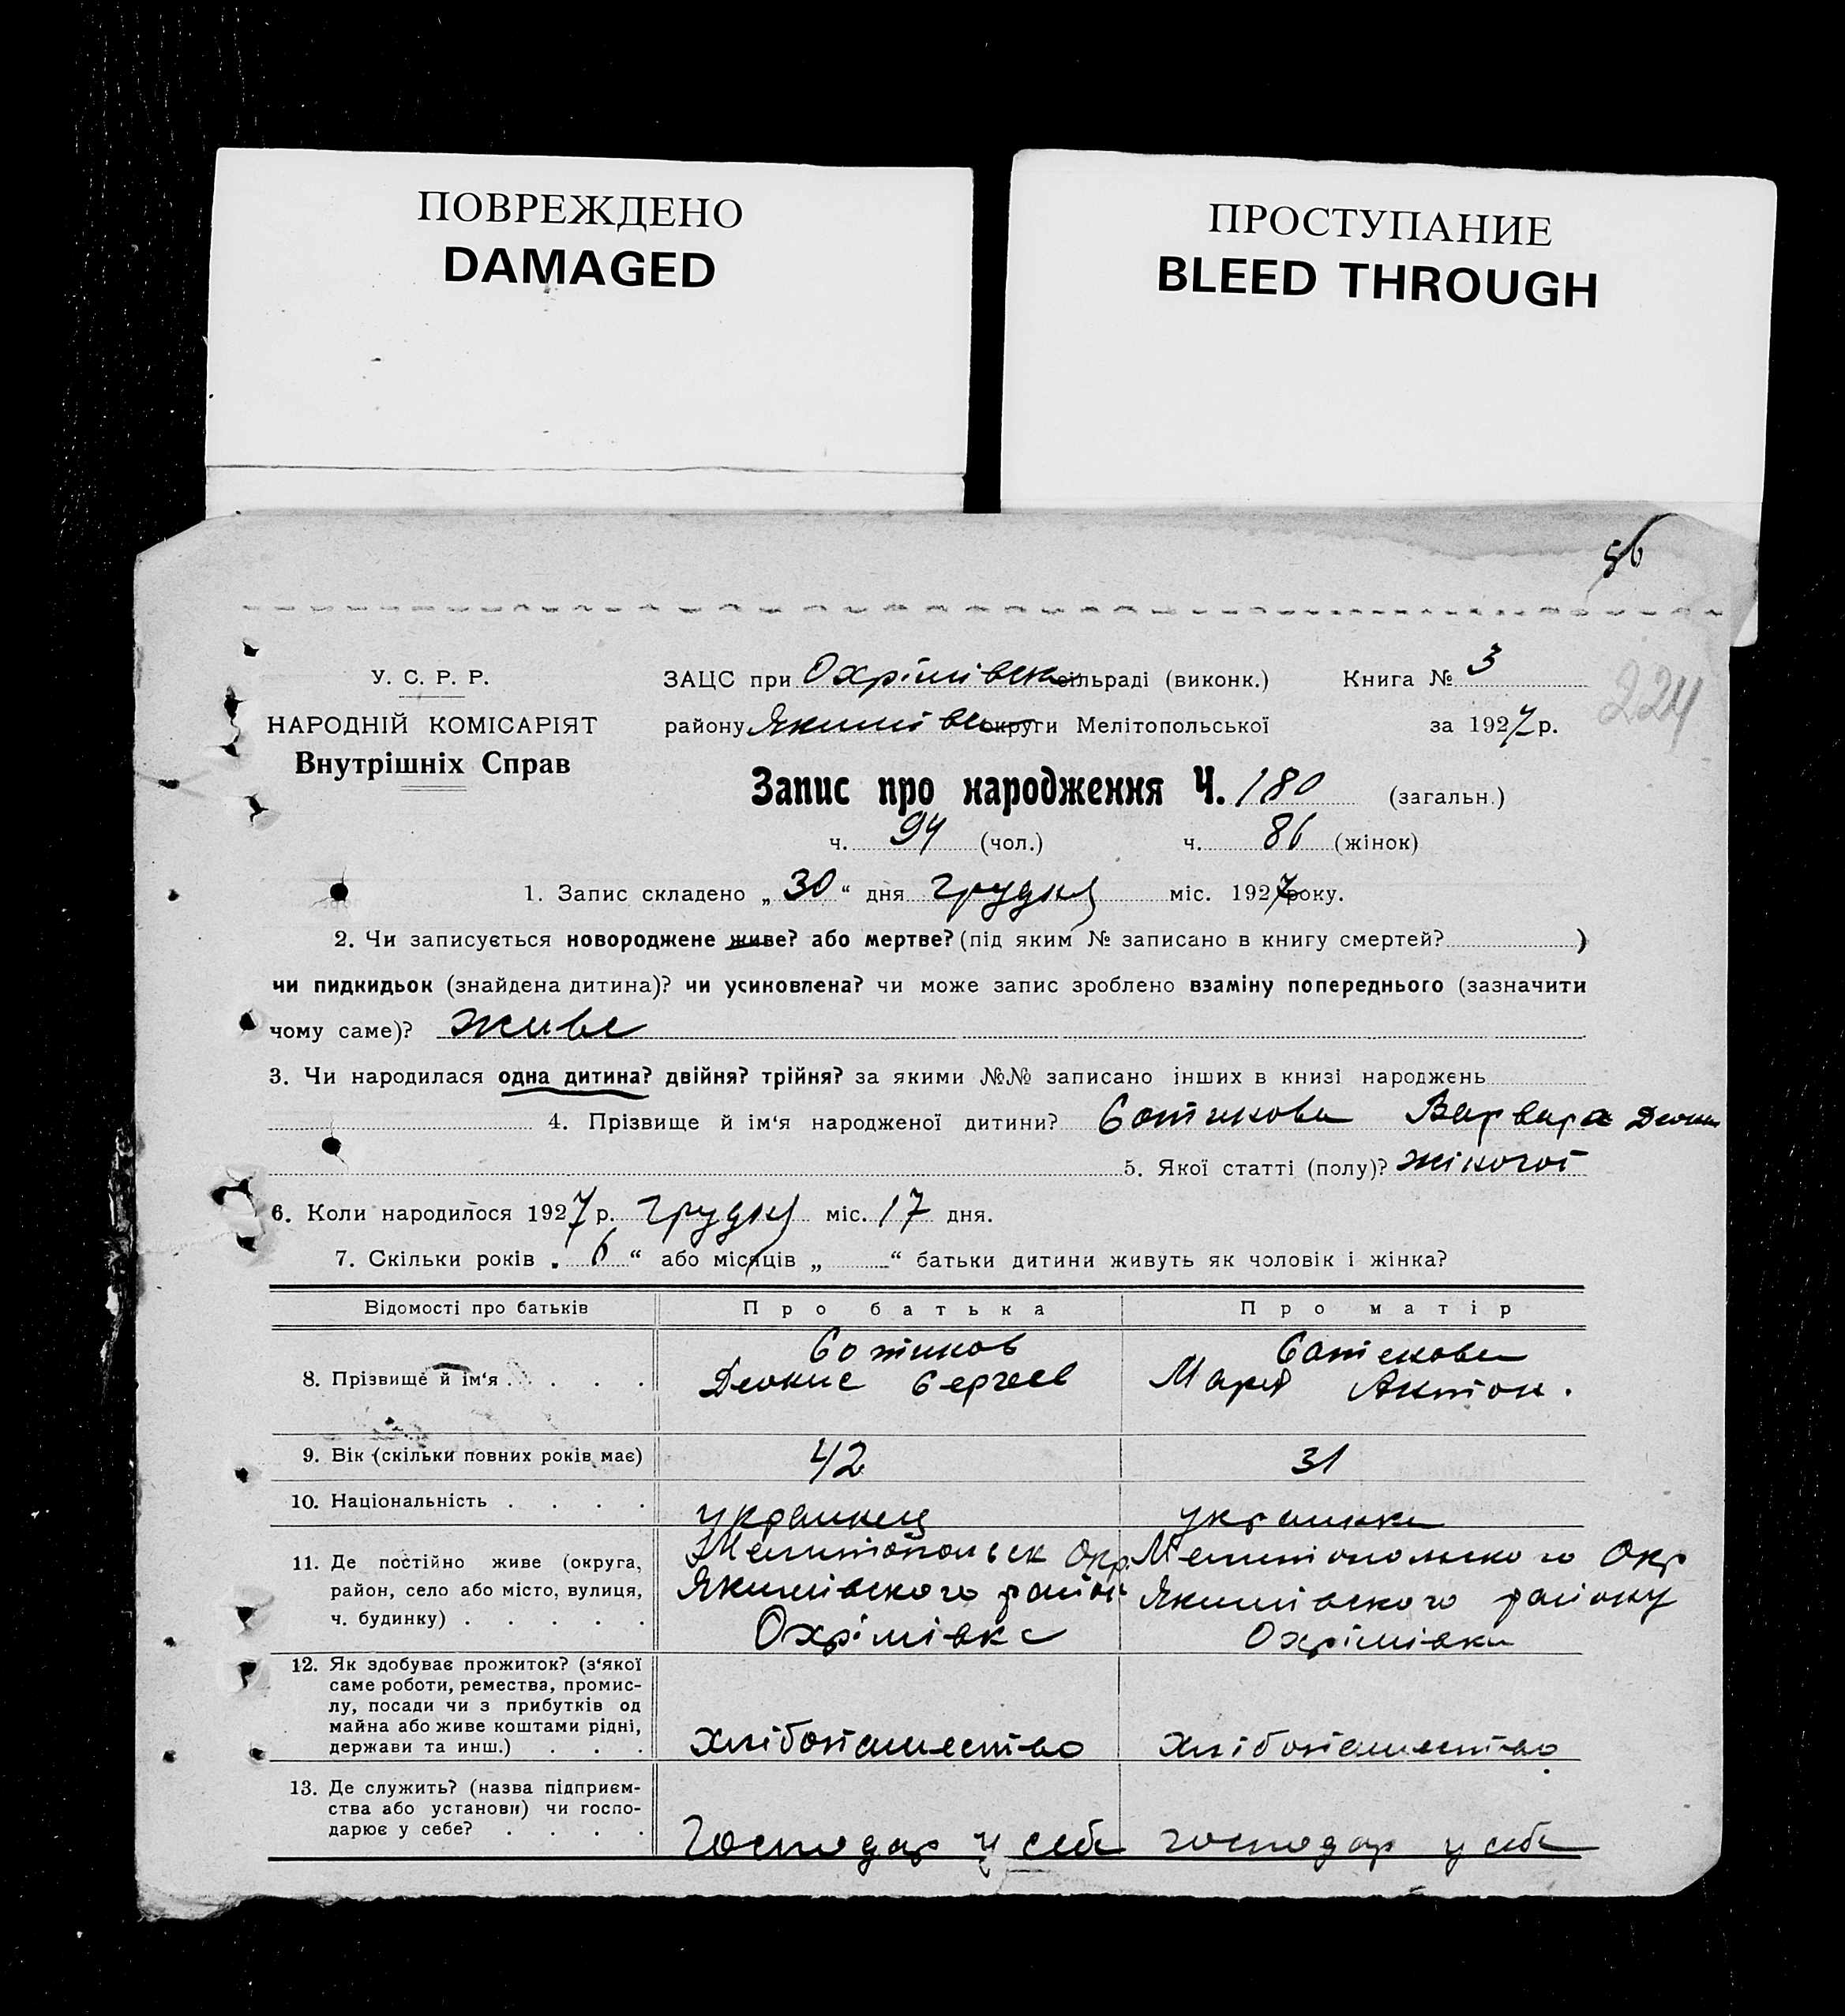 ПОВРЕЖДЕНО
DAMAGED
ПРОСТУПАНИЕ
BLEED THROUGH
56
224
У. С. Р. Р.
НАРОДНІЙ КОМІСАРІЯТ
Внутрішніх Справ
ЗАЦС при Охрімівск сільраді (виконк.) Книга № 3
району Якимівск округи Мелітопольської за 1927 р.
Запис про народження Ч. 180 (загальн.)
ч. 94 (чол.) ч. 86 (жінок)
1. Запис складено „ 30 “ дня грудня міс. 1927 року.
2. Чи записується новороджене живе? або мертве? (під яким № записано в книгу смертей? )
чи пидкидьок (знайдена дитина)? чи усиновлена? чи може запис зроблено взаміну попереднього (зазначити
чому саме)? живе
3. Чи народилася одна дитина? двійня? трійня? за якими №№ записано інших в книзі народжень
4. Прізвище й ім‘я народженої дитини? Сотикова Варвара
5. Якої статті (полу)? жіночої
6. Коли народилося 1927 р. грудня міс. 17 дня.
7. Скільки років „ 6 “ або місяців „ “ батьки дитини живуть як чоловік і жінка?
Відомості про батьків Про батька Про матір
8. Прізвище й ім‘я
Сотиков
Деонис Сергеев
Сотикова
Мария Антон.
9. Вік (скільки повних років має) 42 31
10. Національність украинец украинка
11. Де постійно живе (округа,
район, село або місто, вулиця,
ч. будинку)
Мелитопольск Окр.
Якимівского район
Охрімівка
Мелитопольского Окр
Якимівского району
Охрімівки
12. Як здобуває прожиток? (з‘якої
саме роботи, ремества, промис-
лу, посади чи з прибутків од
майна або живе коштами рідні,
держави та инш.)
хлібопашество хлібопашество
13. Де служить? (назва підприєм-
ства або установи) чи госпо-
дарює у себе?
Господар у себе господар у себе